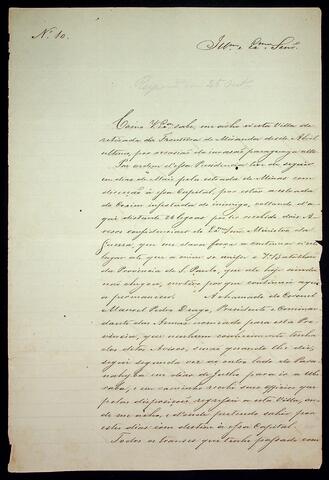 N.º 10.
Illm.º e Exm.º Senr.
Como V. Exa. sabe, me acho n'esta Villa de
retirada da Fronteira de Miranda desde Abril
ultimo, por occasião da invasão paraguaya alli.
Por ordem d'essa Presidencia tive de seguir
em dias de Maio pela estrada de Minas com
direcção á essa Capital, por estar a estrada
de Coxim infestada do inimigo, voltando d'a
qui distante 26 legoas por ter recebido dois A-
visos confidenciaes do Exmo. Senr. Ministro da
Guerra, que me dava força a continuar n'este
lugar até que a mim se unisse o 7.º Batalhão
da Provincia de S. Paulo, que até hoje ainda
não chegou, motivo por que continúo aqui
a permanecer. A chamado do Coronel
Manoel Pedro Drago, Presidente e Comman-
dante das Armas nomeado para esta Pro-
vincia, que nenhum conhecimento tinha
dos ditos Avisos, senão quando lhe dei,
segui segunda vez ao outro lado do Para-
nahyba em dias de Julho para ir a Ube-
raba, e em caminho recebi seus officios que
pelas disposições regressei a esta Villa, on-
de me acho, e d'onde pretendo sahir por
estes dias com destino á essa Capital.
Todos os transes que tenho passado com